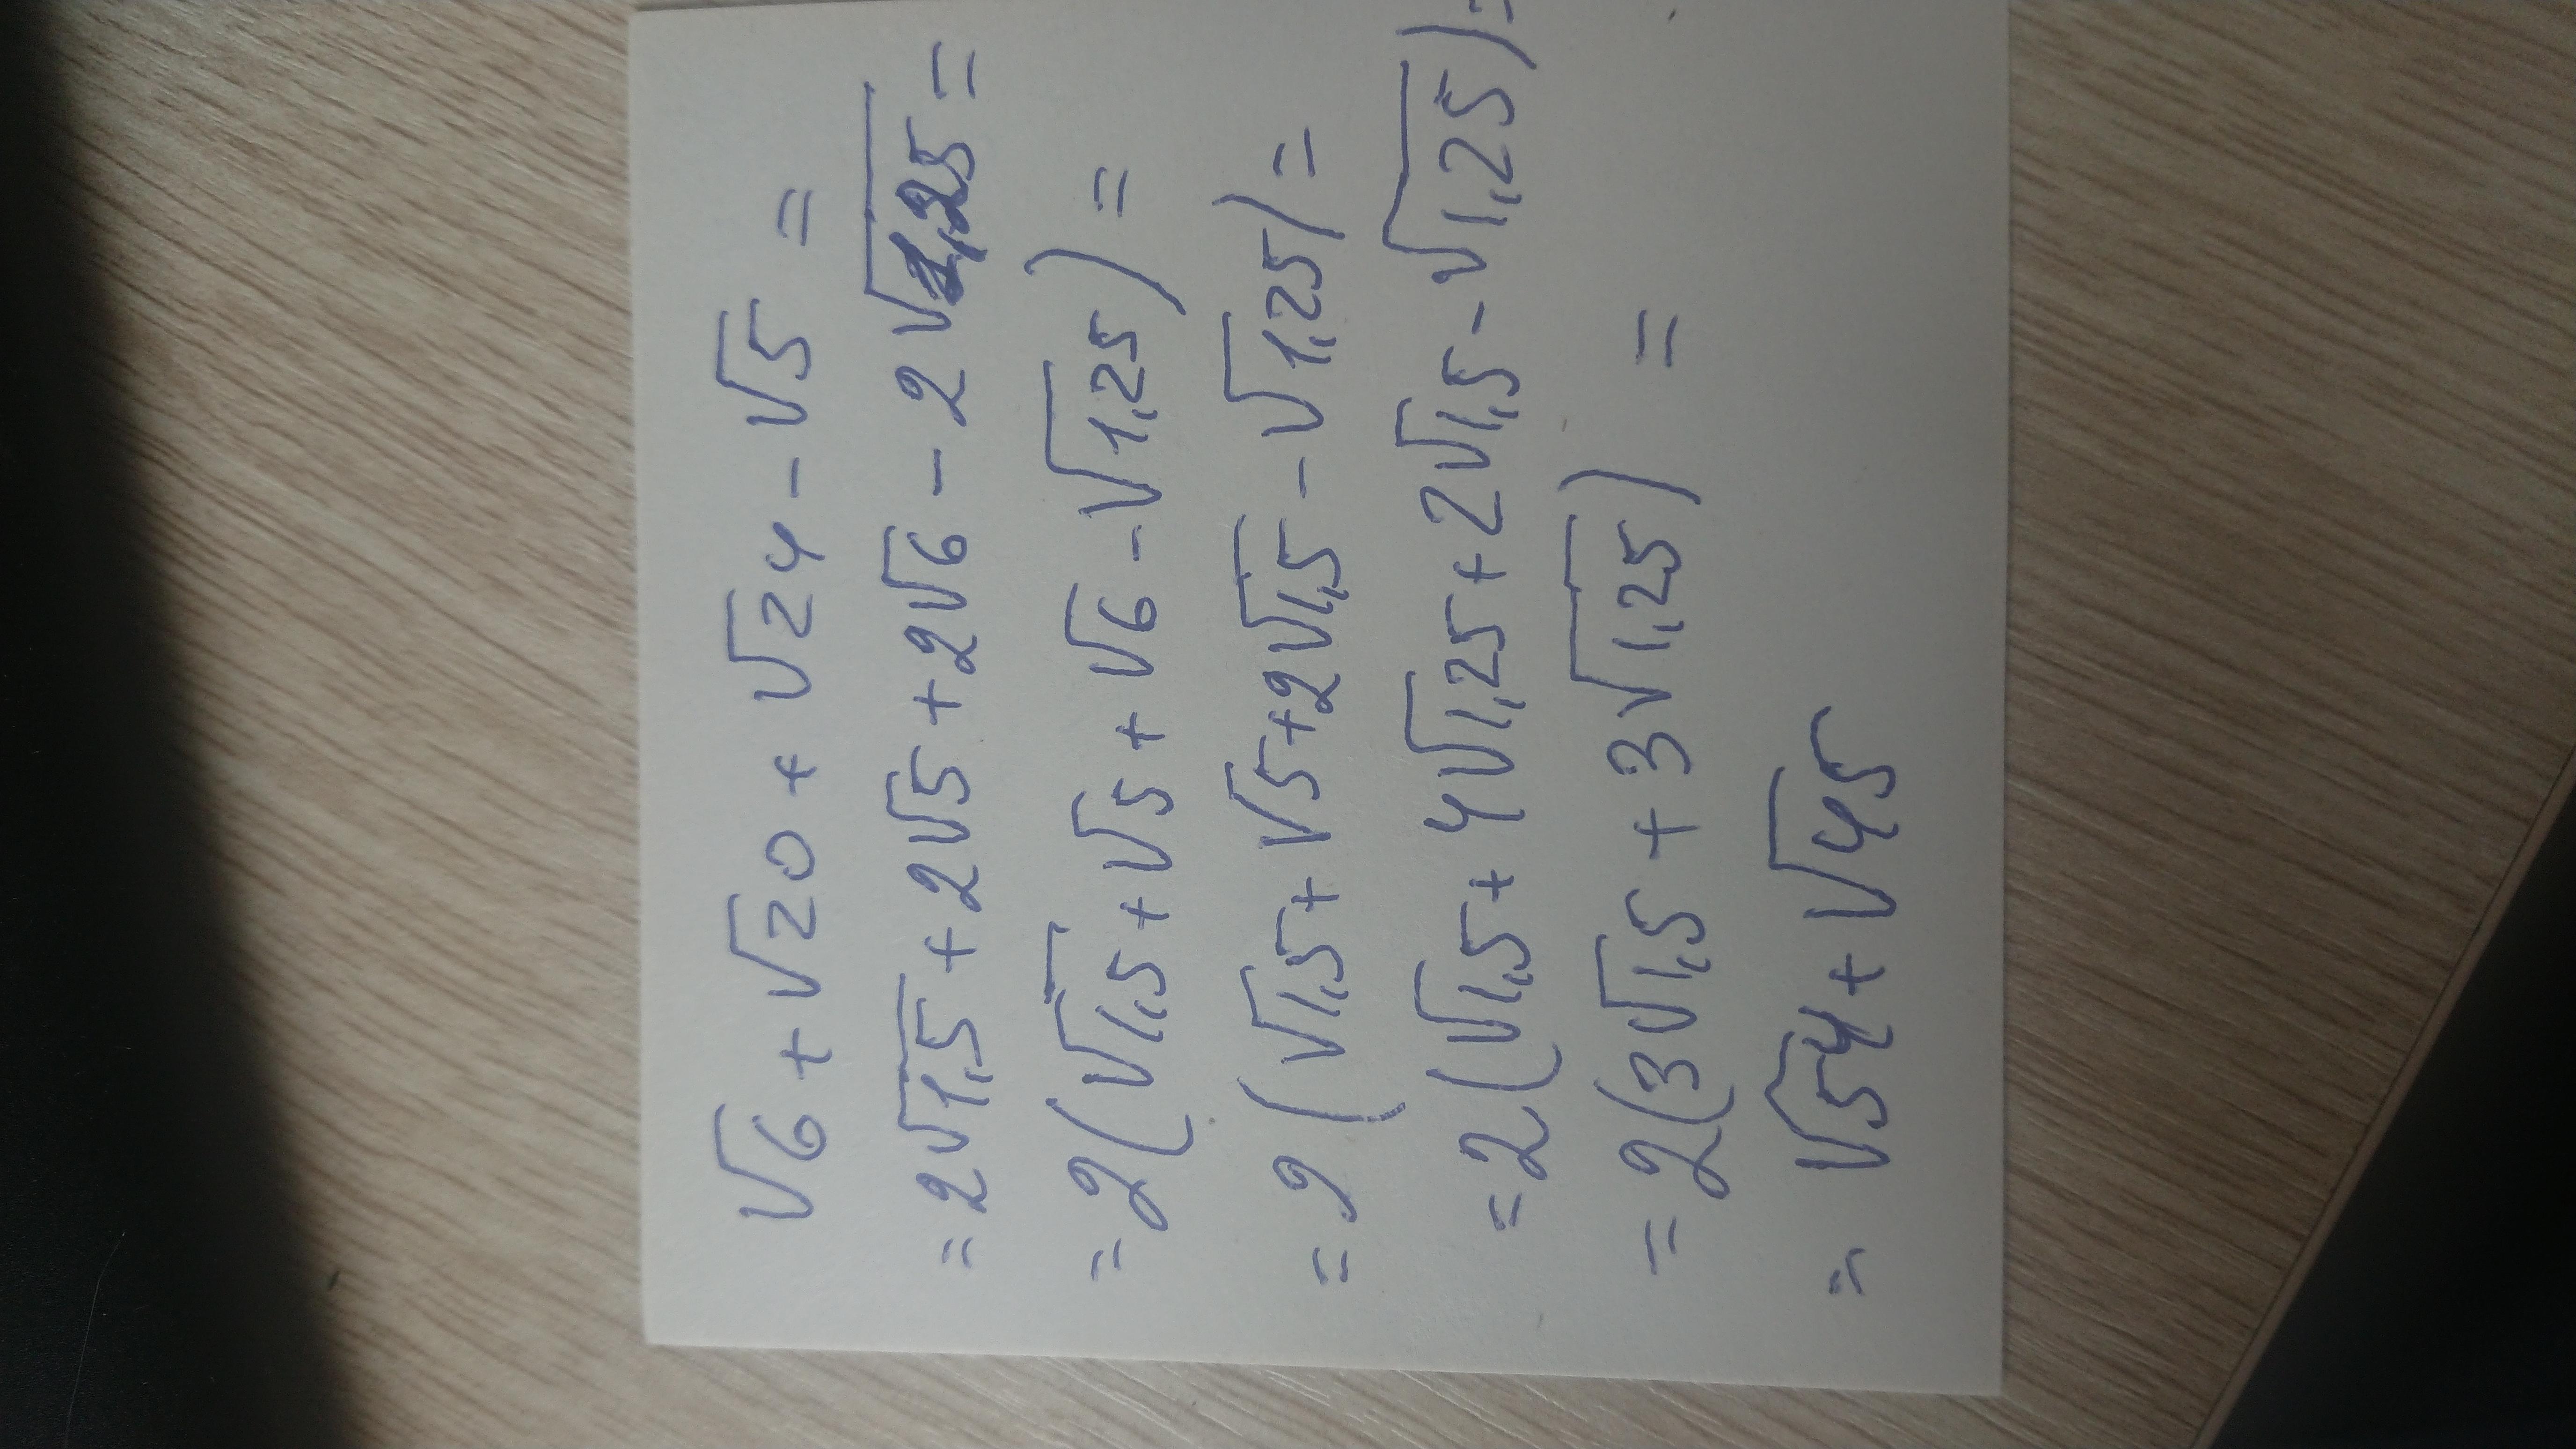 √6 + √20 + √24 - √5 =
= 2√1,5 + 2√5 + 2√6 - 2√1,25 =
= 2(√1,5 + √5 + √6 - √1,25) =
= 2(√1,5 + √5 + 2√1,5 - √1,25) =
= 2(√1,5 + 4√1,25 + 2√1,5 - √1,25) =
= 2(3√1,5 + 3√1,25) =
= √54 + √45